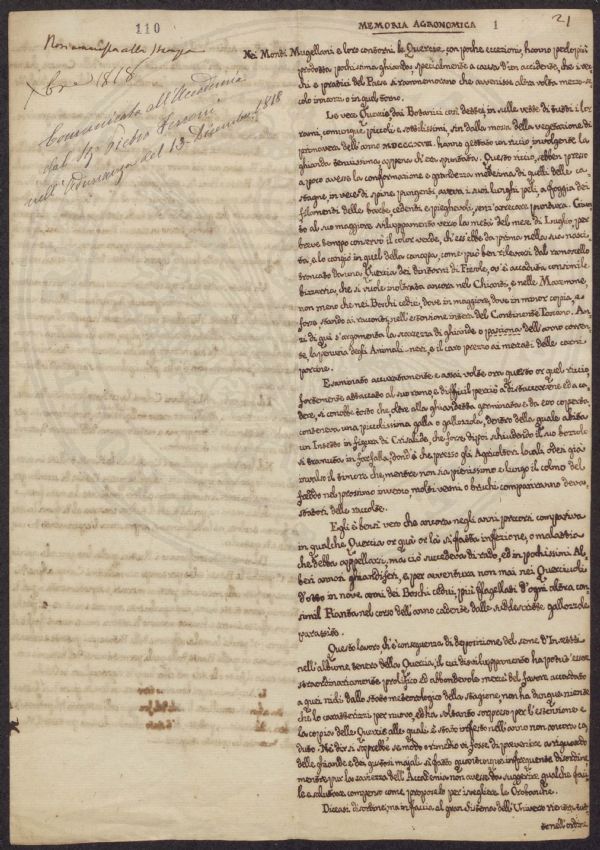 110
MEMORIA AGRONOMICA 1
21
Non ammessa alla stampa
Xbre 1818
Comunicata all'Accademia
dal Sig. Pietro Ferroni
nell'Adunanza del 13 Dicembre 1818
Nei Monti Mugellani e loro contorni le Querce, con poche eccezioni, hanno perlopiù
prodotto pochissima ghianda, specialmente a causa d'un accidente, che i vec-
chi e pratici del Paese si rammemorano che avvenisse altra volta mezzo se-
colo incirca o in quel torno.
Le vere Querci dai Botanici così dette in sulle vette di tutti i lor
rami, comunque piccoli e sottilissimi, sin dalla mossa della vegetazione di
primavera dell'anno MDCCCXVIII. hanno gettato un riccio involgente la
ghianda tenuissima appena ch'era spuntata. Questo riccio, sebben presso
a poco avesse la conformazione e grandezza medesima di quelli delle ca-
stagne, in vece di spine pungenti aveva i suoi lunghi peli, a foggia dei
filamenti delle barbe, cedenti e pieghevoli, senz'arrecare puntura. Giun-
to al suo maggiore sviluppamento verso la metà del mese di Luglio, per
breve tempo conservò il color verde, ch'ess'ebbe da prima nella sua nasci-
ta, e lo cangiò in quel della canapa, come può ben rilevarsi dal ramoscello
troncato da una Quercia dei dintorni di Fiesole, ov'è accaduta consimile
bizzarria, che si vuole inoltrata ancora nel Chianti, e nelle Maremme,
non meno che nei Boschi cedui, dove in maggiore, dove in minor copia, e
forse, stando ai racconti, nell'estensione intera del Continente Toscano. An-
zi di qui s'argomenta la scarsezza di ghiande o pasciona dell'anno corren-
te, la penuria degli Animali neri, e il caro prezzo ai mercati delle carni
porcine.
Esaminato accuratamente e assai volte ora questo or quel riccio,
fortemente attaccato al suo ramo, e difficil perciò a distaccarsene ed a ca-
dere, si conobbe tosto che oltre alla ghiandetta germinata e da esso coperta
conteneva una piccolissima galla o gallozzola, dentro della quale abita
un Insetto in figura di Crisalide, che forse dipoi schiudendo il suo bozzolo
si tramuta in farfalla; dond'è che presso gli Agricoltori locali odesi già
invalso il timore che, mentre non sia freddissimo e lungo il colmo del
freddo nel prossimo inverno, molti vermi o bruchi compariranno deva-
statori delle raccolte.
Egli è bensì vero che ancora negli anni precorsi compariva
in qualche Quercia or quà or là sì fatta infezione, o malattia
che debba appellarsi, ma ciò succedeva di rado, ed in pochissimi Al-
beri annosi ghiandiferi, e per avventura non mai nei Querciuoli
d'otto in nove anni dei Boschi cedui, più flagellati d'ogni altra con-
simil Pianta nel corso dell'anno cadente dalle suddescritte gallozzole
parassite.
Questo lavoro, ch'è conseguenza di deposizione del seme d'Insetti
nell'albume tenero della Quercia, il cui disviluppamento ha potut'essere
straordinariamente prolifico ed abbondevole mercè del favore accordato
a quei nidi dallo stato meteorologico della stagione, non ha dunque niente
che lo caratterizzi per nuovo, ed ha soltanto sorpreso per l'estensione e
la copia delle Querci alle quali è stato infesto nell'anno non ancora ca-
duto. Nè dir si saprebbe se modo o rimedio vi fosse di prevenire a riguardo
delle ghiande e dei ghiotti majali sì fatto quantunque infrequente disordine,
mentre pur la saviezza dell'Accademia non avesse da suggerire qualche faci-
le e salutare compenso come propose lo per isvegliere le Orobanche.
Dicesi disordine, ma in faccia al gran Sistema dell'Universo rientra tut-
to nell'ordine